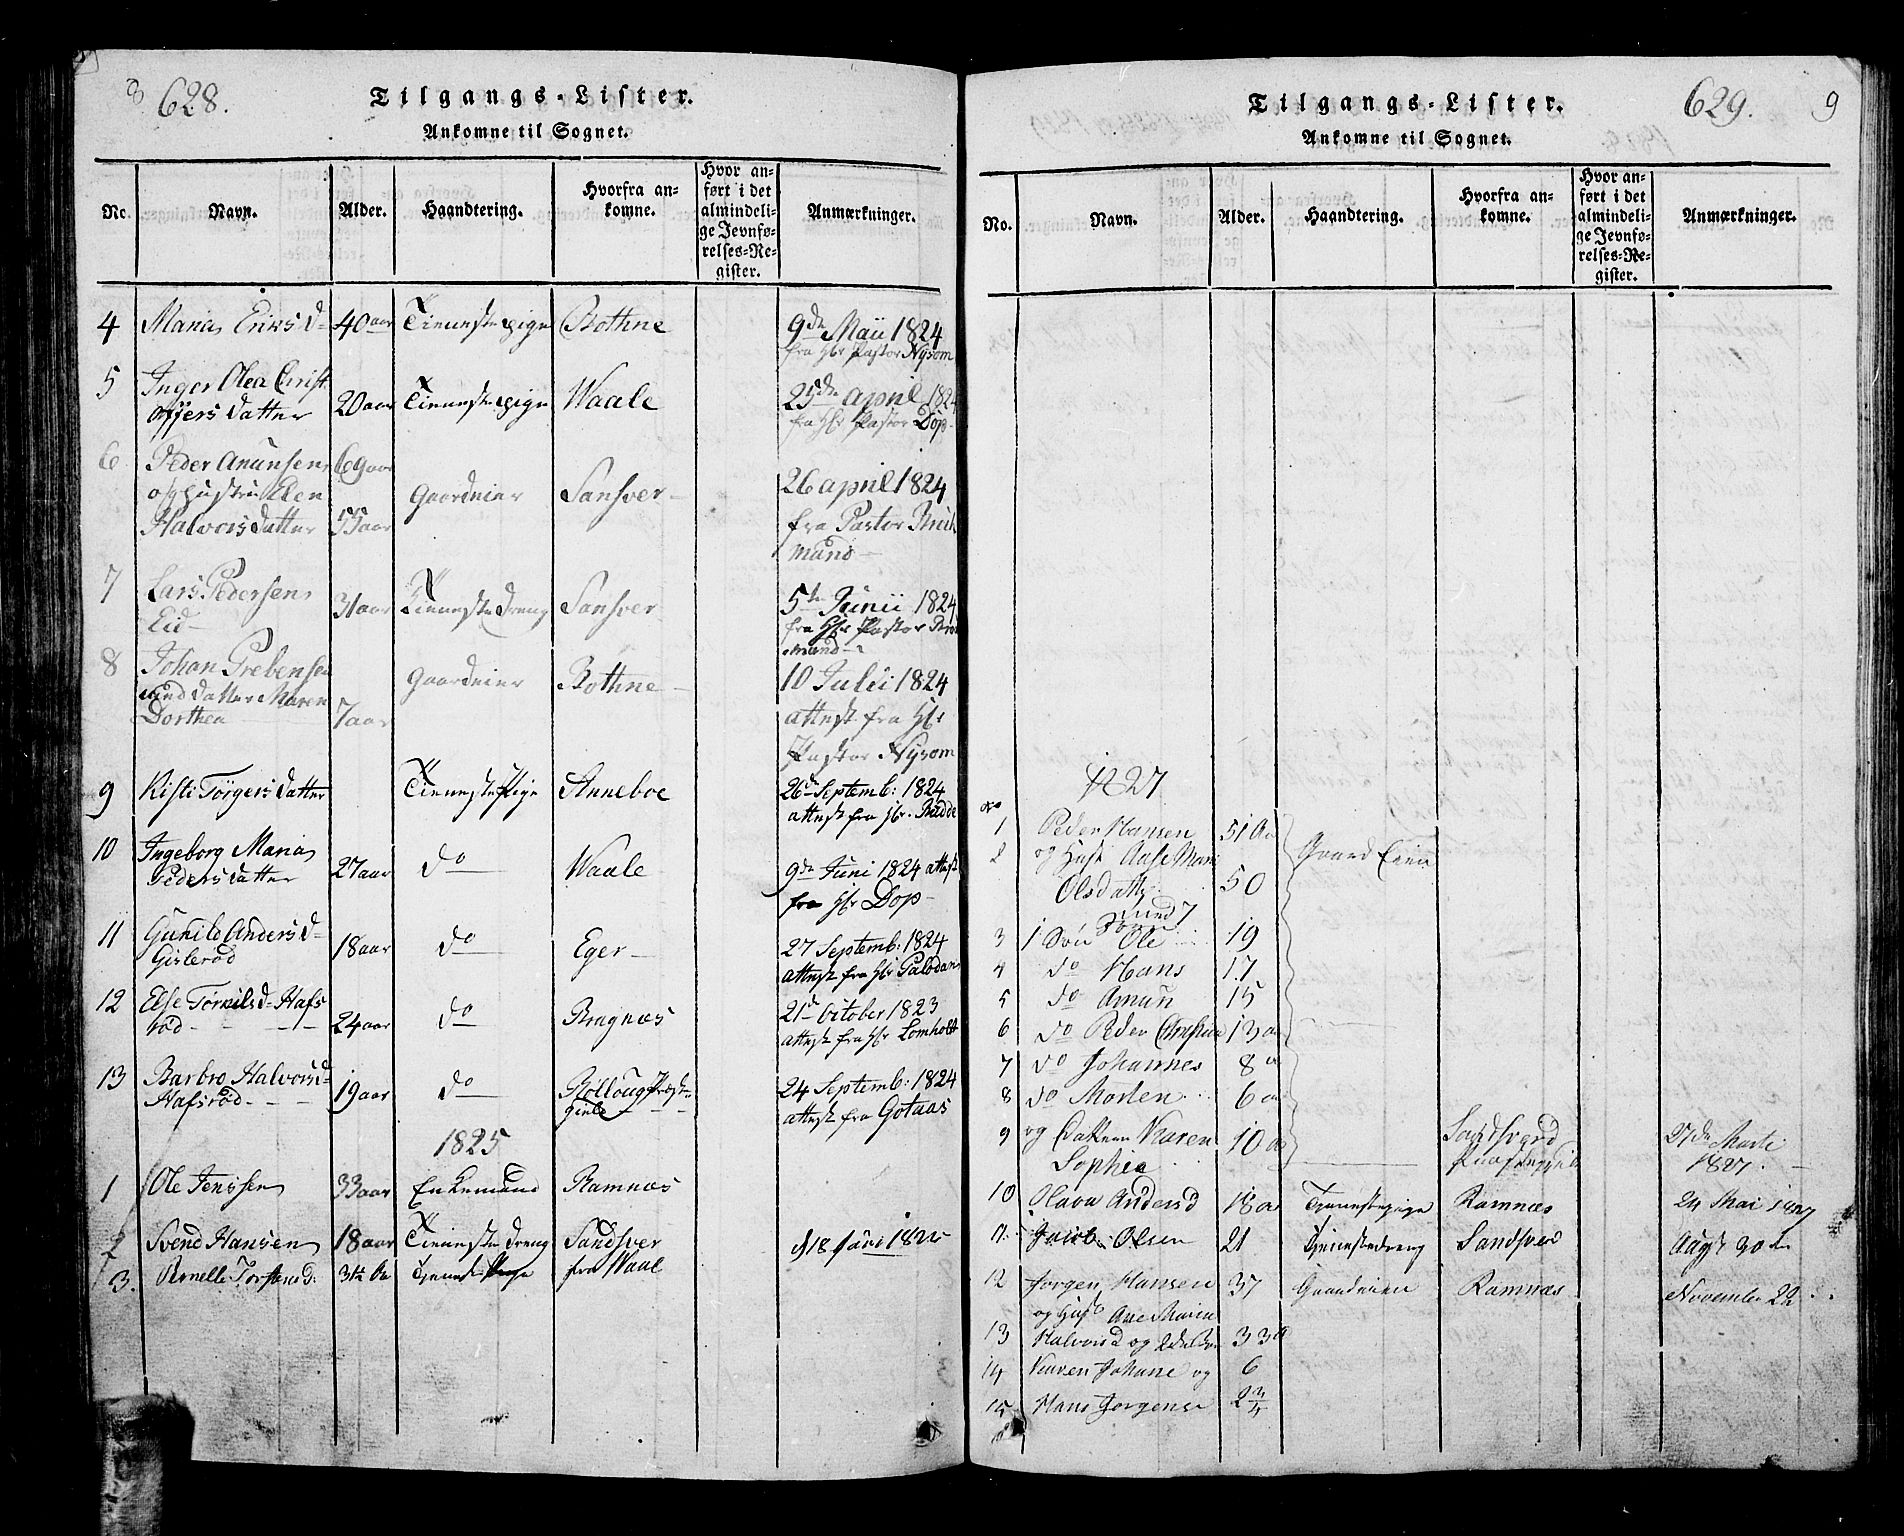 8 628.
Tilgangs-Lister.
Ankomne til Sognet.
No. Navn. Alder. Haandtering. Hvorfra an-
komne. Hvor an-
ført i det
almindeli-
ge Jevnfø-
relses-Re-
gister. Anmærkninger.
4 Maria Eriksd- 40 aar Tieneste pige Bothne 9de Maii 1824
fra Hr Pastor Nysom
5 Inger Olea Christ
offers datter 20 aar Tieneste pige Waale 25de april 1824
fra Hr Pastor Dop-
6 Peder Anunsen 69 aar
og hustru Elen Gaardeier Sansver- 26 april 1824
Halvorsdatter 55 aar fra Pastor
mund-
7 Lars Pedersen 31 aar Tieneste dreng Sansver 5te Junii 1824
Eid- fra Hr Pastor
mund-
8 Johan Prebensen Gaardeier Bothne- 10 Julii 1824
med datter Maren
Dorthea 7 aar attest fra Hr
Pastor Nysom
9 Kisti Törgersdatter Tieneste Pige Anneboe 26 Septemb: 1824
attest fra Hr. Budde
10 Ingeborg Maria
Pedersdatter 27 aar do Waale 9de Juni 1824 attest
fra Hr Dop-
11 Gunild Andersd-
Gislerød 18 aar do Eger- 27 Septemb: 1824
attest fra Hr Paludan
12 Else Törkilsd- Hafs
rød 24 aar do Bragnæs 21d October 1823
attest fra Hr Lomholt
13 Barbro Halvorsd-
Hafsrød 19 aar do Rolloug Præst-
gield 24 Septemb: 1824
attest fra Gotaas
1825
1 Ole Jenssen 33 aar Enkemand Ramnæs
2 Svend Hansen 18 aar Tieneste dreng Sandsver d 18 Juni 1825
3. Pernelle Torstensd: Tjeneste Pige fra Waal
629. 9
Tilgangs-Lister.
Ankomne til Sognet.
No. Navn. Alder. Haandtering. Hvorfra an-
komne. Hvor an-
ført i det
almindeli-
ge Jevnfø-
relses-Re-
gister. Anmærkninger.
1827
No
1 Peder Hansen 51 Aa
2 og Hust Aase Marie Gaard Eier
Olsdatter 50
med 7
Børn
3 1 Søn Ole 19
4 do Hans 17
5 do Amun 15
6 do Peder Christian 13 a
7 do Johannes 8 a
8 do Morten 6 a
9 og Datteren Karen 10 a Sandsværd 27de Marti
Sophia 1827.
10 Olava Andersd 18 a Tjenestepige Ramnæs 24 Mai 1827
11. Jacob Olsen 21 Tjenestedreng Sandsver Augst 30te
12 Jørgen Hansen 37 Gaardeier Ramnæs November 22
og Hust Ane Maria
13 Halvorsd og 2de Bø 33
14 Karen Johane og 6
15 Hans Jørgense 2 3/4